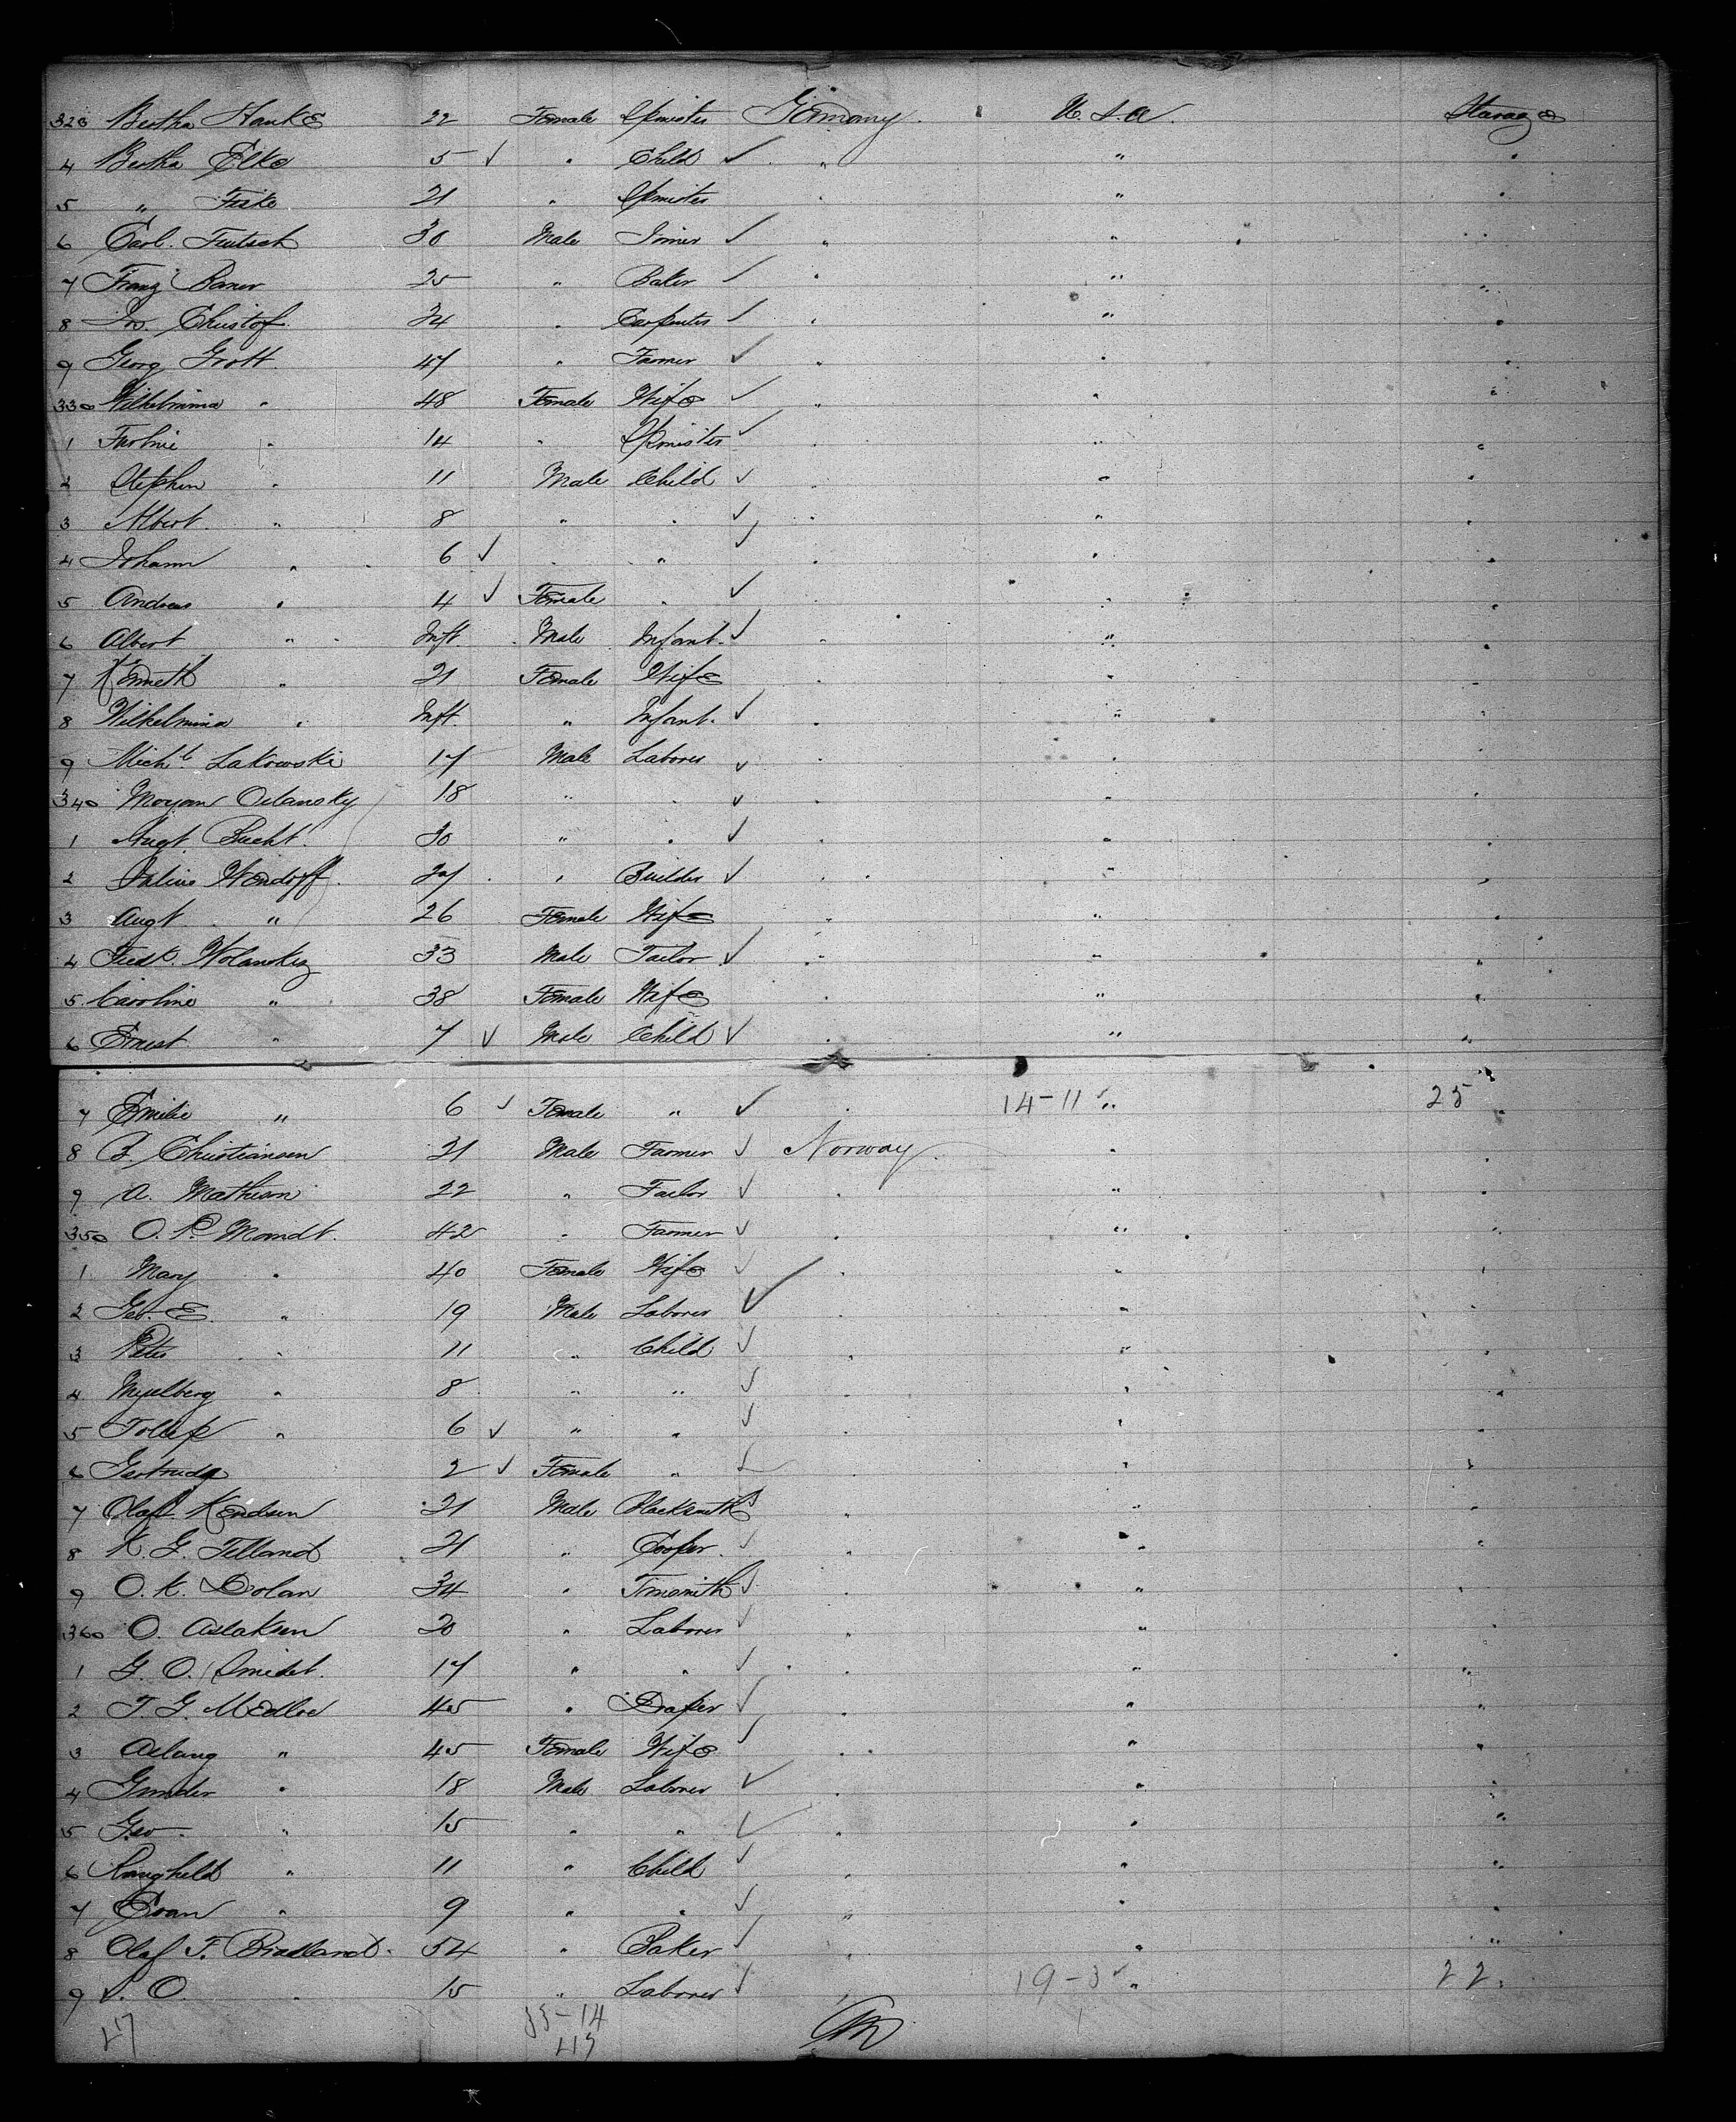 323 Bertha Hanke 22 Female Spinster Germany. U.S.A. Steerage
4 Bertha Elke 5 ✓ " Child ✓ " " "
5 " Fiske 21 " Spinster " " "
6 Carl. Teutsch 30 Male Joiner ✓ " " "
7 Franz Baner 25 " Baker ✓ " " "
8 Christof 34 " Carpenter ✓ " " "
9 Georg Grott. 47 " Farmer ✓ " " "
330 Wilhelmina " 48 Female Wife ✓ " " "
1 " 14 " Spinster ✓ " " "
2 Stephen " 11 Male Child ✓ " " "
3 Albert " 8 " " ✓ " " "
4 Johann " 6 ✓ " " ✓ " " "
5 Andreas " 4 ✓ Female " ✓ " " "
6 Albert " Inft. Male Infant. ✓ " " "
7 " 21 Female Wife " " "
8 Wilhelmina " Inft. " Infant. ✓ " " "
9 Michl. Lakowski 17 Male Laborer ✓ " " "
340 Moyan Orlansky 18 " " ✓ " " "
1 Augt. Bucht. 30 " " ✓ " " "
2 Julius Wendorff. 27 " Builder ✓ " " "
3 Augt. " 26 Female Wife " " "
4 Fredk. Wolansky 33 Male Tailor ✓ " " "
5 Caroline " 38 Female Wife " " "
6 Ernest " 7 ✓ Male Child ✓ " " "
7 Emilie " 6 ✓ Female " ✓ " 14-11 " 25 "
8 B. Christiansen 21 Male Farmer ✓ Norway. " "
9 A. Mathison 22 " Tailor ✓ " " "
350 O. P. Momdt. 42 " Farmer ✓ " " "
1 Mary " 40 Female Wife ✓ " " "
2 Geo. E. " 19 Male Laborer ✓ " " "
3 Peter " 11 " Child ✓ " " "
4 " 8 " " ✓ " " "
5 Tollef " 6 ✓ " " ✓ " " "
6 Gertrude 2 ✓ Female " ✓ " " "
7 Olaf Kendsen 21 Male Blacksmith ✓ " " "
8 K. G. Telland 21 " Cooper. ✓ " " "
9 O. K. Dolan 34 " Tinsmith ✓ " " "
360 O. Aslaksen 20 " Laborer ✓ " " "
1 G. O. Smidt. 17 " " ✓ " " "
2 T. G. Medloe 45 " Draper ✓ " " "
3 Aslaug " 45 Female Wife ✓ " " "
4 Gunder " 18 Male Laborer ✓ " " "
5 Geo. " 15 " " ✓ " " "
6 Rangheld " 11 " Child ✓ " " "
7 Evan " 9 " " ✓ " " "
8 Olaf T. Bradland. 54 " Baker ✓ " " "
9 S. O. " 15 " Laborer ✓ " 19-3 " 22 "
47 33-14
47